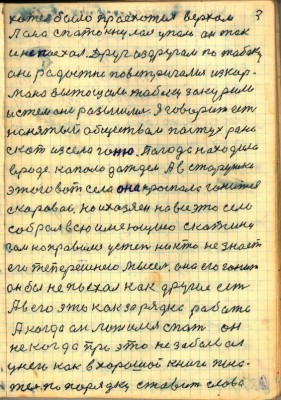 3
хотел было проехотися верхом
Папа споткнулася упал он так
и не поехал. Друг а з другам по табаку
они радостно повстречались из кар-
мана вытощили табаку закурили
и стем они разышлись. Я говорит ет
нанятый обществом пастух рано
скот из села гоню. Погода находила
вроде капало дождем А в старушки
этого вот села она пропала гонится
скаровай, но и хозяен на виэто село
собрал всю имеющию скатину
сам направился устеп никто не знает
его теперешнего мысел, она его гонит
он бы не поехал как другие ет
А в его это как зарядка работа
А когда он ложился спат он
некогда про это не забывал
унего как в хорошой книге тоже
по порядку ставит слова